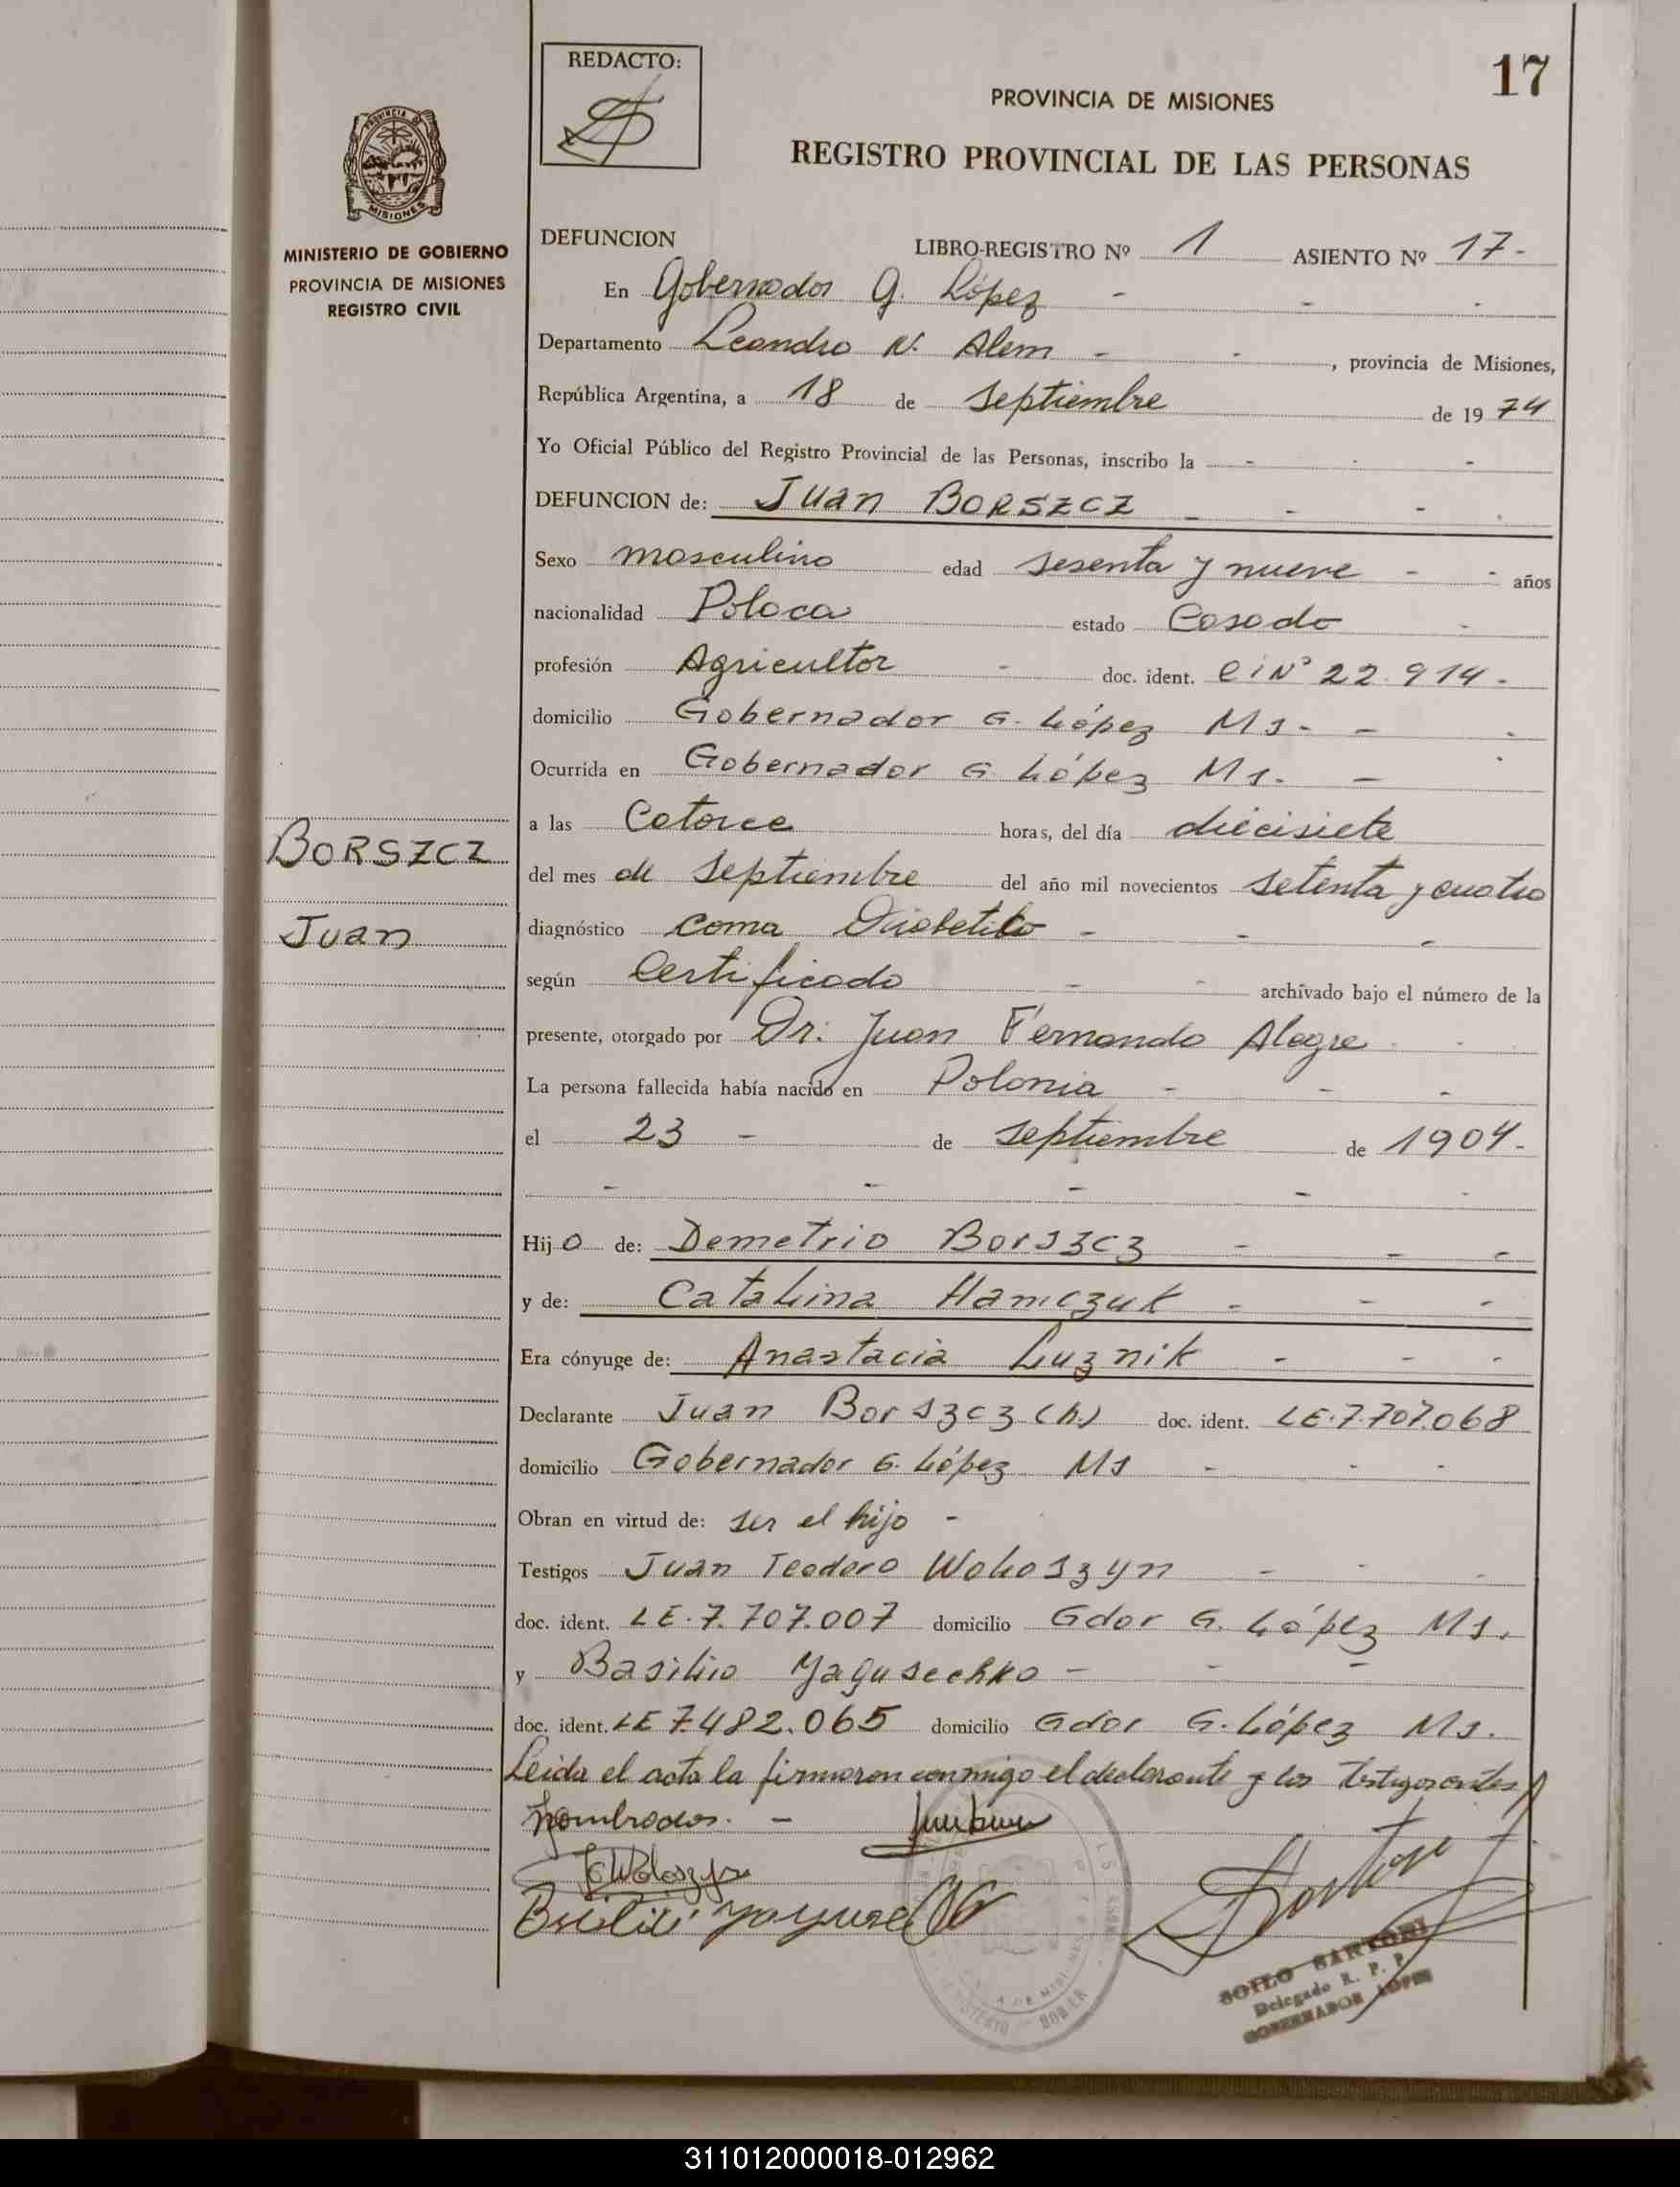 17
REDACTO:
PROVINCIA DE MISIONES
REGISTRO PROVINCIAL DE LAS PERSONAS
PROVINCIA DE
MISIONES
MINISTERIO DE GOBIERNO
PROVINCIA DE MISIONES
REGISTRO CIVIL
DEFUNCION LIBRO-REGISTRO Nº 1 ASIENTO Nº 17-
En Gobernador G. López - - -
Departamento Leandro N. Alem - - , provincia de Misiones,
República Argentina, a 18 de septiembre de 1974
Yo Oficial Público del Registro Provincial de las Personas, inscribo la - - -
DEFUNCION de: Juan BORSZCZ - - - -
Sexo masculino edad sesenta y nueve - - años
nacionalidad Polaca estado Casado -
profesión Agricultor - doc. ident. CiNº 22.914-
domicilio Gobernador G. López Ms- - -
Ocurrida en Gobernador G. López Ms- - -
a las Catorce horas, del día diecisiete
BORSZCZ
del mes de Septiembre del año mil novecientos setenta y cuatro
Juan
diagnóstico coma Diabetico - - -
según Certificado - - archivado bajo el número de la
presente, otorgado por Dr. Juan Fernando Alegre - -
La persona fallecida había nacido en Polonia - - -
el 23 - de septiembre de 1904-
- - - - -
Hijo de: Demetrio Borszcz - - -
y de: Catalina Hamczuk - - -
Era cónyuge de: Anastacia Luznik - - -
Declarante Juan Borszcz (h.) doc. ident. LE.7.707.068
domicilio Gobernador G. López Ms - - -
Obran en virtud de: ser el hijo -
Testigos Juan Teodoro Woloszyn - - -
doc. ident. LE.7.707.007 domicilio Gdor G. López Ms.
y Basilio Yagusechko - - -
doc. ident. LE 7.482.065 domicilio Gdor G. López Ms.
Leida el acta la firmaron conmigo el declarante y los testigos antes
nombrados. -
SOILO SARTORI
Delegado R. P. P.
GOBERNADOR LOPEZ
311012000018-012962